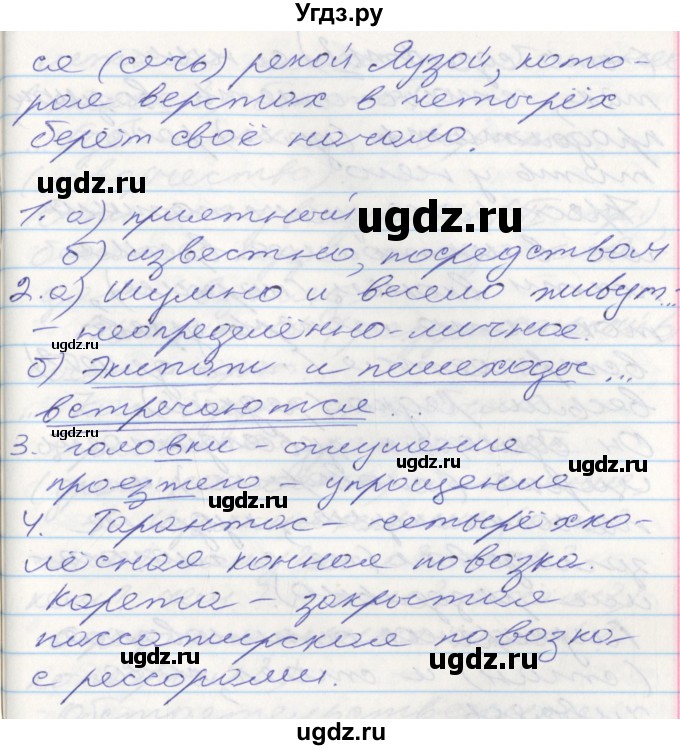 Угдз.ру
ся (сячь) рекой Яузой, кото-
рая верстах в четырёх
берёт своё начало.
ugdz.ru
ugdz.ru
1. а) приятный
ugdz.ru
б) известно, посредством
2. а) Шумно и весело живут...
- неопределённо-личное.
ugdz.ru
ugdz.ru
б) Экипаж и пешеходы ...
встречаются ...
ugdz.ru
3. головки - оглушение
ugdz.ru
ugdz.ru
проезжего - упрощение
ugdz.ru
4. Тарантас - четырёхко-
лёсная конная повозка.
Карета - закрытая
пассажирская повозка
ugdz.ru
ugdz.ru
с рессорами.
ugdz.ru
ugdz.ru